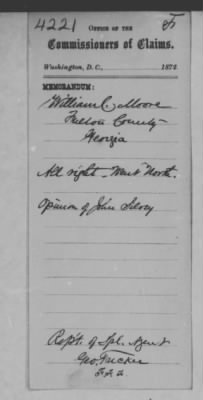 4221
OFFICE OF THE
Commissioners of Claims.
Washington, D. C., 1874
MEMORANDUM:
William C. Moore
Fulton County
Georgia
All right - Went North.
Opinion of John Silvey
Rept. of Spl. Agent
Geo. Tucker